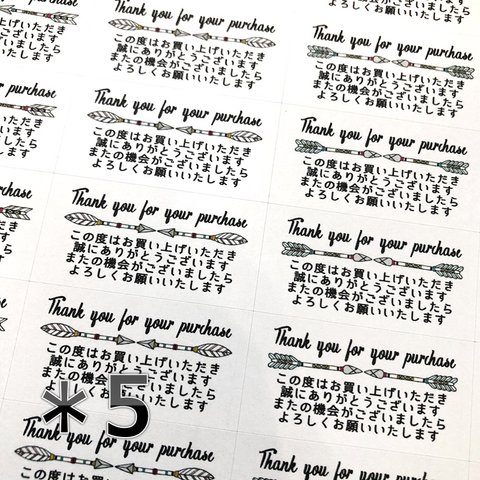 Thank you for your purchase
この度はお買い上げいただき
誠にありがとうございます
またの機会がございましたら
よろしくお願いいたします
Thank you for your purchase
この度はお買い上げいただき
誠にありがとうございます
またの機会がございましたら
よろしくお願いいたします
Thank you for your purchase
この度はお買い上げいただき
誠にありがとうございます
またの機会がございましたら
よろしくお願いいたします
Thank you for your purchase
この度はお買い上げいただき
誠にありがとうございます
またの機会がございましたら
よろしくお願いいたします
Thank you for your purchase
Thank you for your purchase
この度はお買い上げいただき
誠にありがとうございます
またの機会がございましたら
よろしくお願いいたします
Thank you for your purchase
この度はお買い上げいただき
誠にありがとうございます
またの機会がございましたら
よろしくお願いいたします
Thank you for your purchase
この度はお買い上げいただき
誠にありがとうございます
またの機会がございましたら
よろしくお願いいたします
Thank you for your purchase
この度はお買い上げいただき
誠にありがとうございます
またの機会がございましたら
よろしくお願いいたします
Thank you for your purchase
*5